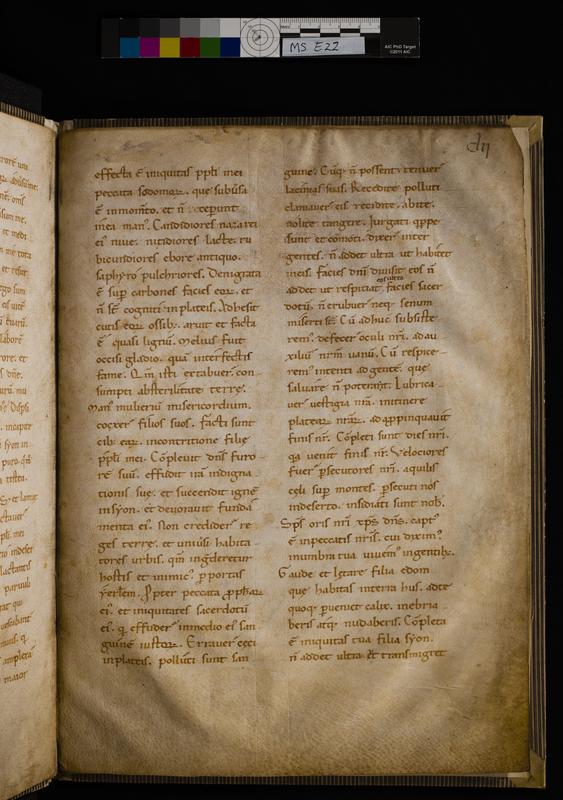 MS E22
AIC PhD Target
©2011 AIC
effecta ē iniquitas ppłi mei
peccata sodomoꝝ. que subūsa
ē inmomto. et ñ ceꝑunt
inea man᷒. Candidiores nazarei
ei᷒ niue. nitidiores lacte. ru
bicundiores ebore antiquo.
saphyro pulchriores. Denigrata
ē suꝑ carbones facies eoꝝ. et
ñ st̄ cogniti inplateis. Adhesit
cutis eoꝝ ossib᷒. aruit et facta
ē quasi lignū. Melius fuit
occisi gladio. quā interfectis
fame. Qm̄ isti extabuer̄ con
sumpti absterilitate terre.
Man᷒ mulierū misericordium.
coxer̄ filios suos. facti sunt
cib᷒ eaꝝ. incontritione filie
ppłi mei. Cōpleuit dñs furo
rē suū. effudit irā indigna
tionis sue. et succendit ignē
insyon. et deuorauit fundā
menta ei᷒. Non credider̄ re
ges terre. et uniūsi habita
tores urbis. qm̄ ingderetur
hostis et inimic᷒. ꝑ portas
ierłm. Ppter peccata ꝓphaꝝ
ei᷒. et iniquitates sacerdotū
ei᷒. q᷒ effuder̄ inmedio ei᷒ san
guinē iustoꝝ. Errauer̄ ceci
inplateis. polluti sunt san
guine. Cūq᷒ ñ possent tenuer̄
lacinias suas. Recedite polluti
clamauer̄ eis recedite. abite.
nolite tangere. Iurgati qꝑpe
sunt et cōmoti. dixer̄ inter
gentes. ñ addet ultra ut habitet
ineis. facies dñi diuisit eos ñ
addet ut respiciat eos ultra. facies sacer
dotū. ñ erubuer̄ neq᷒ senum
miserti st̄. Cū adhuc subsiste
rem᷒. defecer̄ oculi nri. ad au
xiliū nrm̄ uanū. Cū respice
rem᷒ intenti ad gentē. que
saluare ñ poterant. Lubrica
uer̄ uestigia nra. initinere
plateaꝝ nraꝝ. ad ꝓpinquauit
finis nr̄. Cōpleti sunt dies nri.
qa uenit finis nr̄. Velociores
fuer̄ ꝑsecutores nri. aquilis
celi suꝑ montes. ꝑsecuti nos
indeserto. insidiati sunt nob᷒.
Sps oris nri xps dñs. capt᷒
ē inpeccatis nris. cui dixim᷒
inumbra tua uiuem᷒ ingentib᷒.
Gaude et letare filia edom
que habitas interra hus. adte
quoq᷒ ꝑueniet calix. inebria
beris atq᷒ nudaberis. Cōpleta
ē iniquitas tua filia syon.
ñ addet ultra ut transmigret